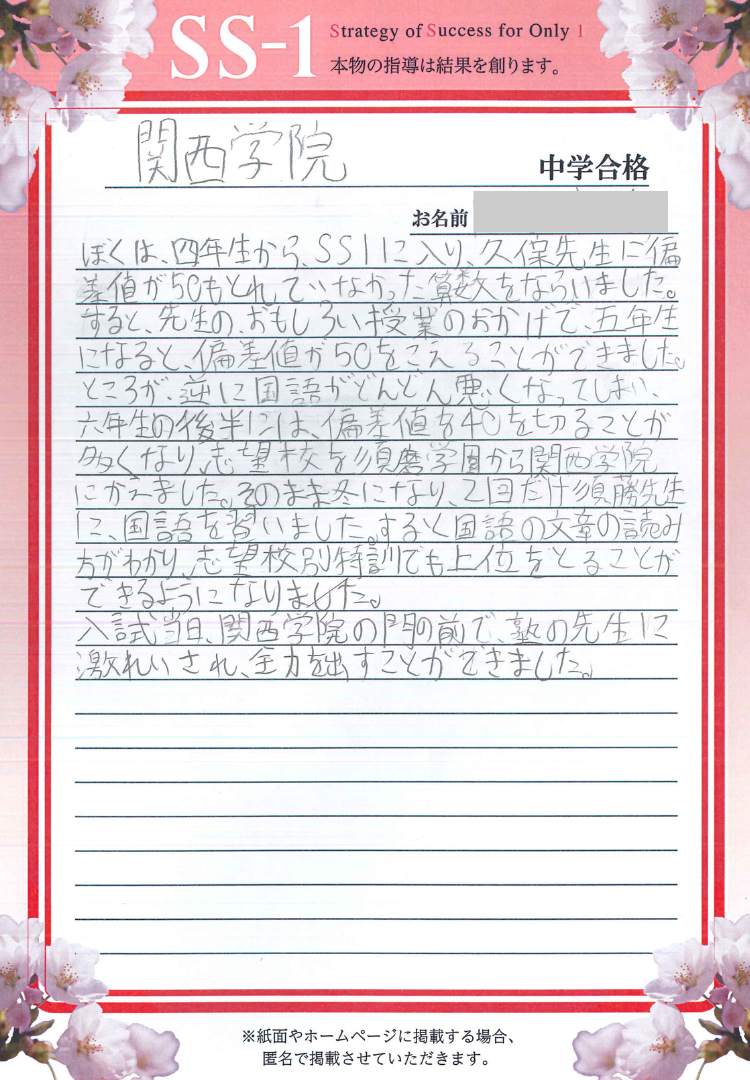 SS-1
Strategy of Success for Only 1
本物の指導は結果を創ります。
関西学院 中学合格
お名前
ぼくは、四年生から、SS1に入り、久保先生に偏
差値が50もとれていなかった算数をならいました。
すると、先生の、おもしろい授業のおかげで、五年生
になると、偏差値が50をこえることができました。
ところが、逆に国語がどんどん悪くなってしまい、
六年生の後半には、偏差値を40を切ることが
多くなり、志望校を須磨学園から関西学院
にかえました。そのまま冬になり、2回だけ須藤先生
に、国語を習いました。すると国語の文章の読み
方がわかり、志望校別特訓でも上位をとることが
できるようになりました。
入試当日、関西学院の門の前で、塾の先生に
激れいされ、全力を出すことができました。
※紙面やホームページに掲載する場合、
匿名で掲載させていただきます。